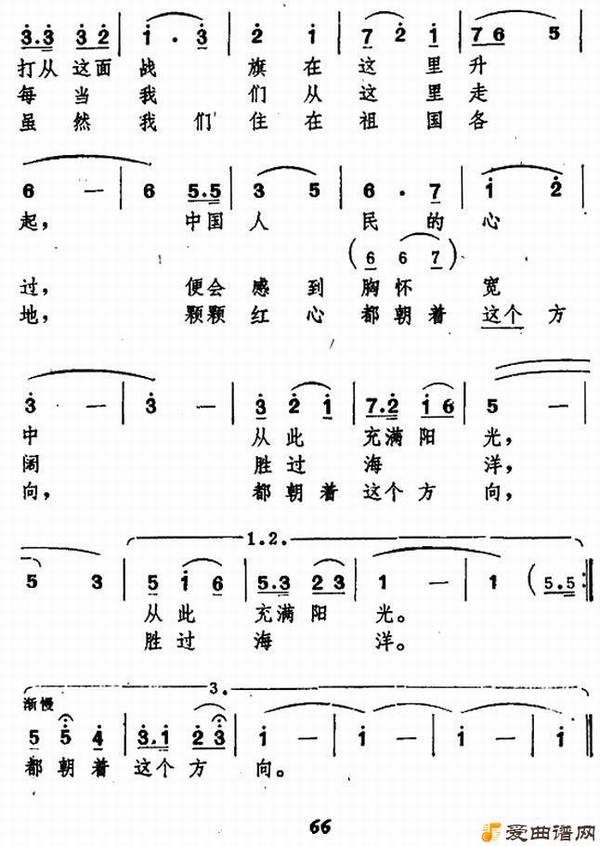 3.3 3 2 | 1 . 3 | 2 1 | 7 2 1 | 7 6 5 |
打从这面战 旗在这里升
每当我们从这里走
虽然我们住在祖国各
6 — | 6 5.5 | 3 5 | 6 . 7 | 1 2 |
起, 中国人 民的心
(6 6 7)
过, 便会感到胸怀宽
地, 颗颗红心都朝着这个方
3 — | 3 — | 3 2 1 | 7.2 1 6 | 5 — |
中 从此充满阳光,
阔 胜过海洋,
向, 都朝着这个方向,
1.2.
5 3 | 5 1 6 | 5.3 2 3 | 1 — | 1 (5.5 :‖
从此充满阳光。
胜过海洋。
3.
渐慢
5 5 4 | 3.1 2 3 | 1 — | 1 — | 1 — ‖
都朝着这个方向。
66
爱曲谱网